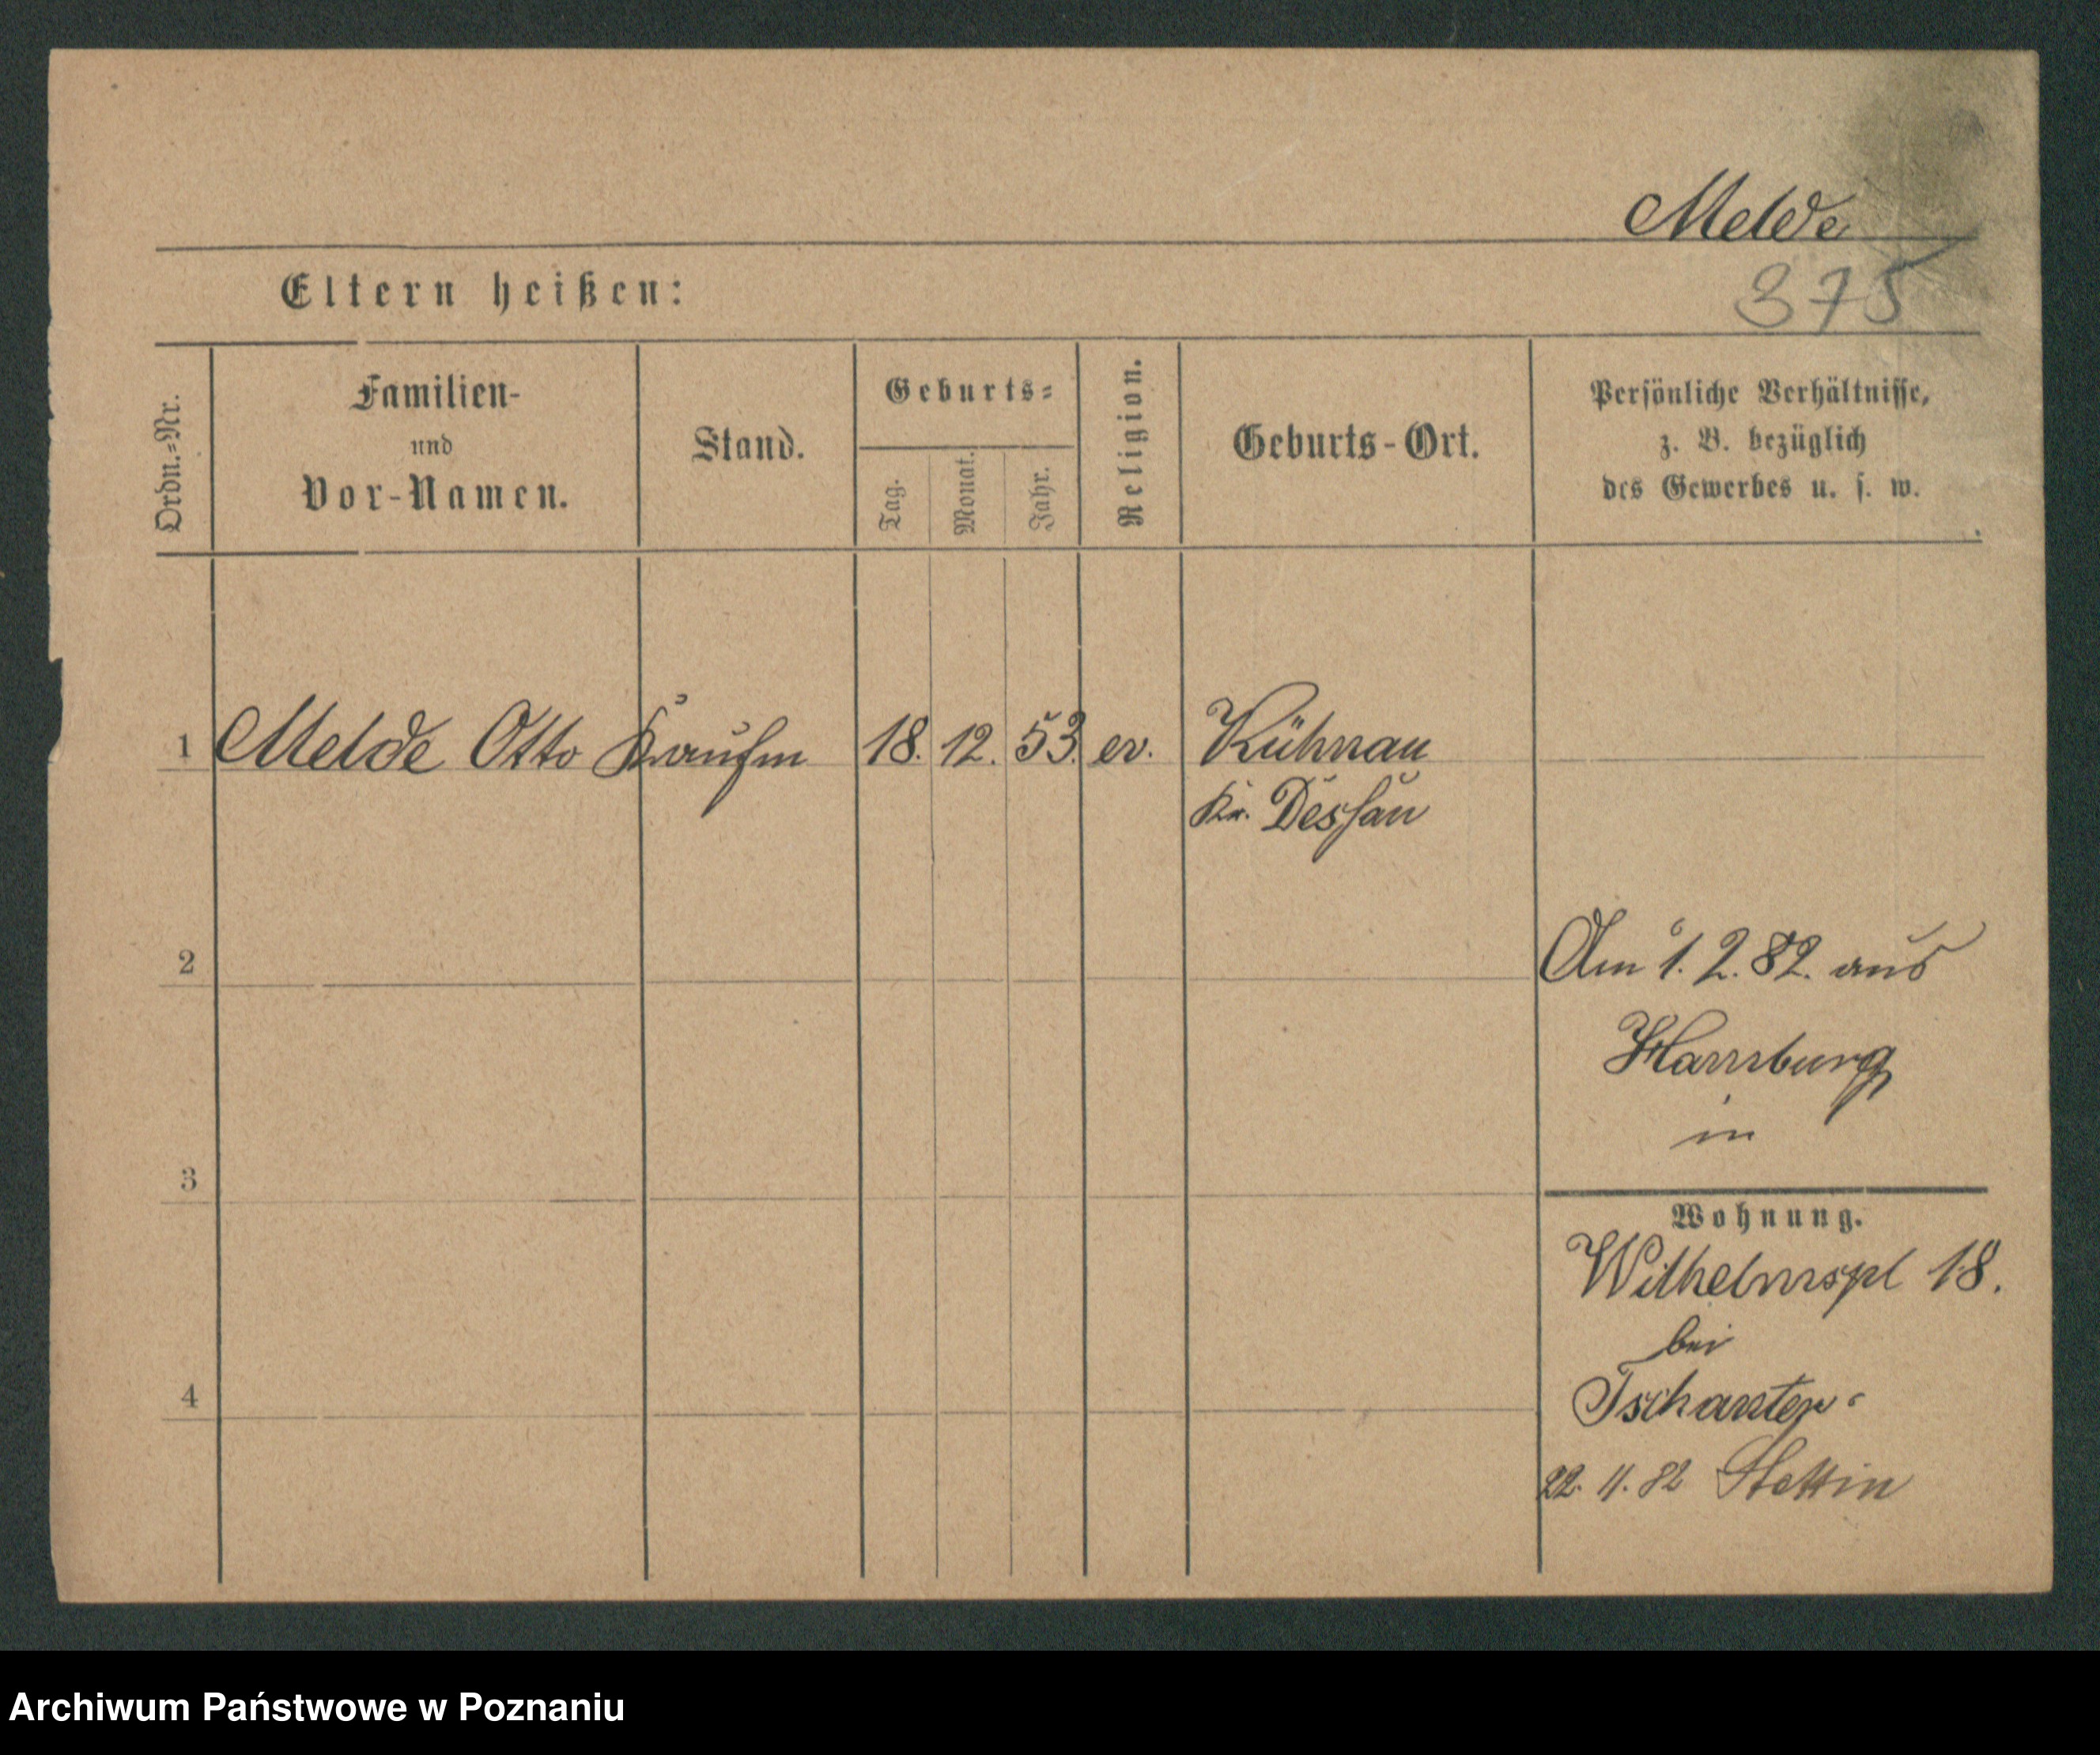 Melde
375
Eltern heißen:
Ordn.-Nr.
Familien-
und
Vor-Namen.
Stand.
Geburts-
Tag.
Monat.
Jahr.
Religion.
Geburts-Ort.
Persönliche Verhältnisse,
z. B. bezüglich
des Gewerbes u. s. w.
1 Melde Otto Kaufm 18. 12. 53. ev. Kühnau
Kr. Dessau
2
Am 1. 2. 82. aus
Hamburg
in
3
Wohnung.
Wilhelmspl 18.
bei
4
22. 11. 82 Stettin
Archiwum Państwowe w Poznaniu